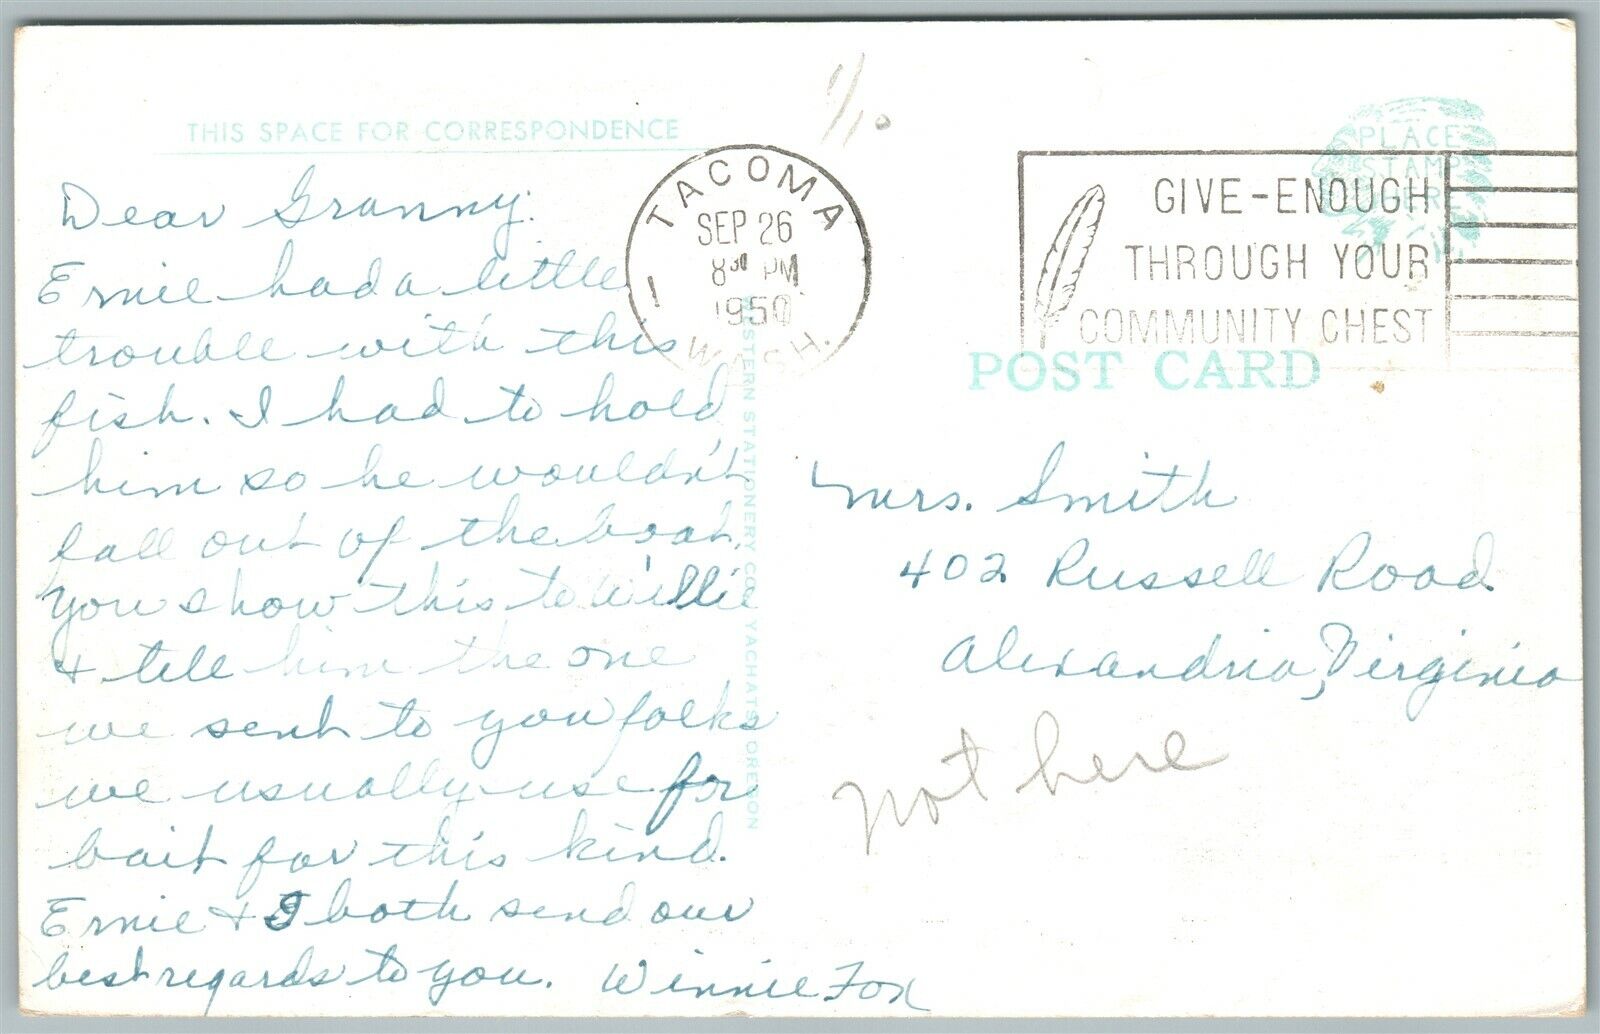 THIS SPACE FOR CORRESPONDENCE
Dear Granny:
Ernie had a little
trouble with this
fish. I had to hold
him so he wouldn't
fall out of the boat.
You show this to Willie
& tell him the one
we sent to you folks
we usually use for
bait for this kind.
Ernie & I both send our
best regards to you. Winnie Fox
WESTERN STATIONERY CO. YACHATS, OREGON
TACOMA
SEP 26
8 30 PM
1950
WASH.
GIVE-ENOUGH
THROUGH YOUR
COMMUNITY CHEST
PLACE
STAMP
HERE
POST CARD
Mrs. Smith
402 Russell Road
Alexandria, Virginia
not here